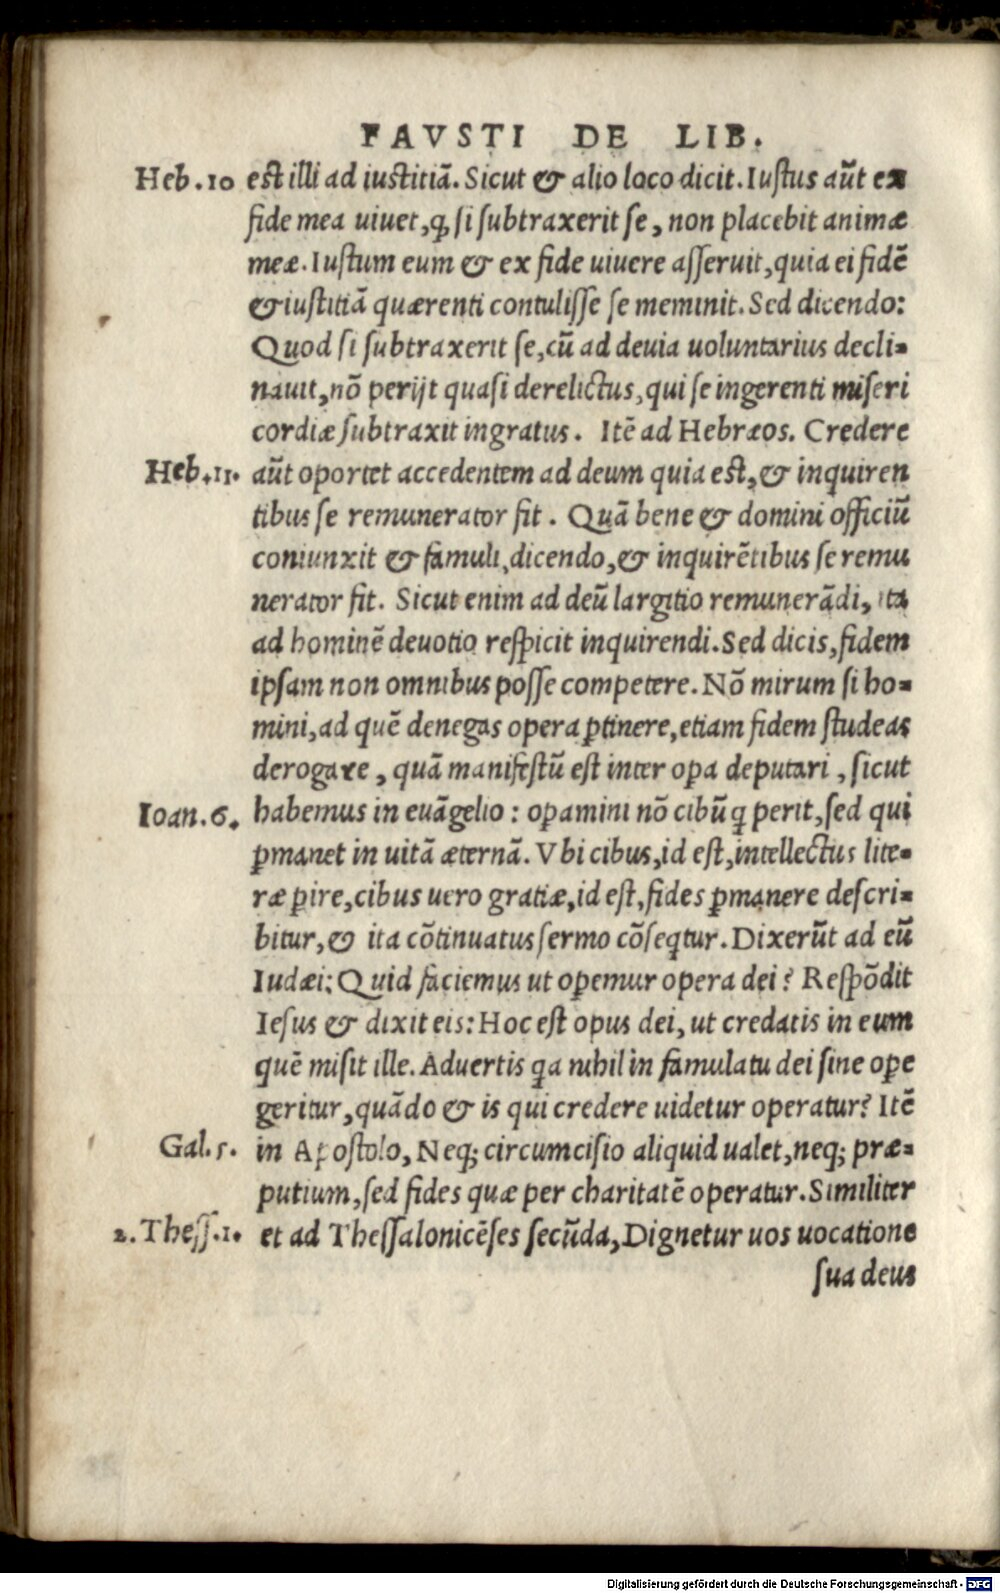 FAVSTI DE LIB.
Heb.10 est illi ad iustitiā. Sicut & alio loco dicit. Iustus aūt ex
fide mea uiuet, ꝙ si subtraxerit se, non placebit animæ
meæ. Iustum eum & ex fide uiuere asseruit, quia ei fidē
& iustitiā quærenti contulisse se meminit. Sed dicendo:
Quod si subtraxerit se, cū ad deuia uoluntarius decli-
nauit, nō perijt quasi derelictus, qui se ingerenti miseri
cordiæ subtraxit ingratus. Itē ad Hebræos. Credere
Heb.11. aūt oportet accedentem ad deum quia est, & inquiren
tibus se remunerator fit. Quā bene & domini officiū
coniunxit & famuli, dicendo, & inquirētibus se remu
nerator fit. Sicut enim ad deū largitio remunerādi, ita
ad hominē deuotio respicit inquirendi. Sed dicis, fidem
ipsam non omnibus posse competere. Nō mirum si ho-
mini, ad quē denegas opera ꝑtinere, etiam fidem studeas
derogare, quā manifestū est inter oꝑa deputari, sicut
Ioan.6. habemus in euāgelio: oꝑamini nō cibū ꝗ perit, sed qui
ꝑmanet in uitā æternā. Vbi cibus, id est, intellectus lite-
ræ ꝑire, cibus uero gratiæ, id est, fides ꝑmanere descri-
bitur, & ita cōtinuatus sermo cōseꝗtur. Dixerūt ad eū
Iudæi: Quid faciemus ut oꝑemur opera dei? Respōdit
Iesus & dixit eis: Hoc est opus dei, ut credatis in eum
quē misit ille. Aduertis ꝗa nihil in famulatu dei sine oꝑe
geritur, quādo & is qui credere uidetur operatur? Itē
Gal.5. in Apostolo, Neq; circumcisio aliquid ualet, neq; præ-
putium, sed fides quæ per charitatē operatur. Similiter
2. Thess.1. et ad Thessalonicēses secūda, Dignetur uos uocatione
sua deus
Digitalisierung gefördert durch die Deutsche Forschungsgemeinschaft - DFG